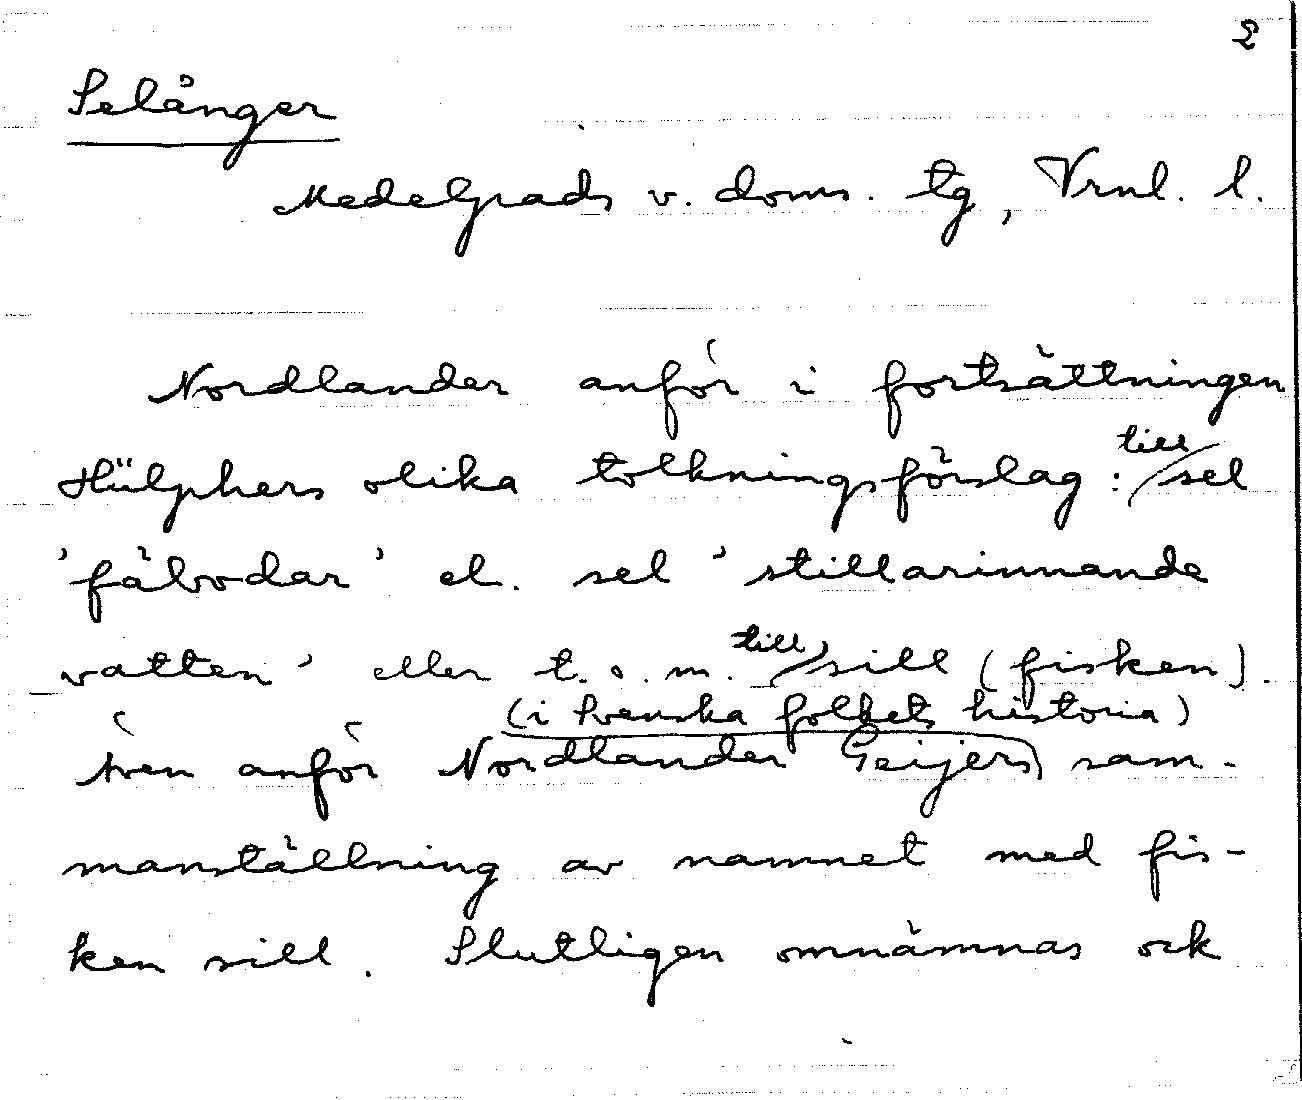 2
Selånger
Medelpads v. doms. tg, Vrnl. l.
Nordlander anför i fortsättningen
Hülphers olika tolkningsförslag: till sel
'fäbodar' el. sel 'stillarinnande
vatten' eller t. o. m. till sill (fisken).
(i Svenska folkets historia)
Även anför Nordlander Geijers sam-
manställning av namnet med fis-
ken sill. Slutligen omnämnas ock